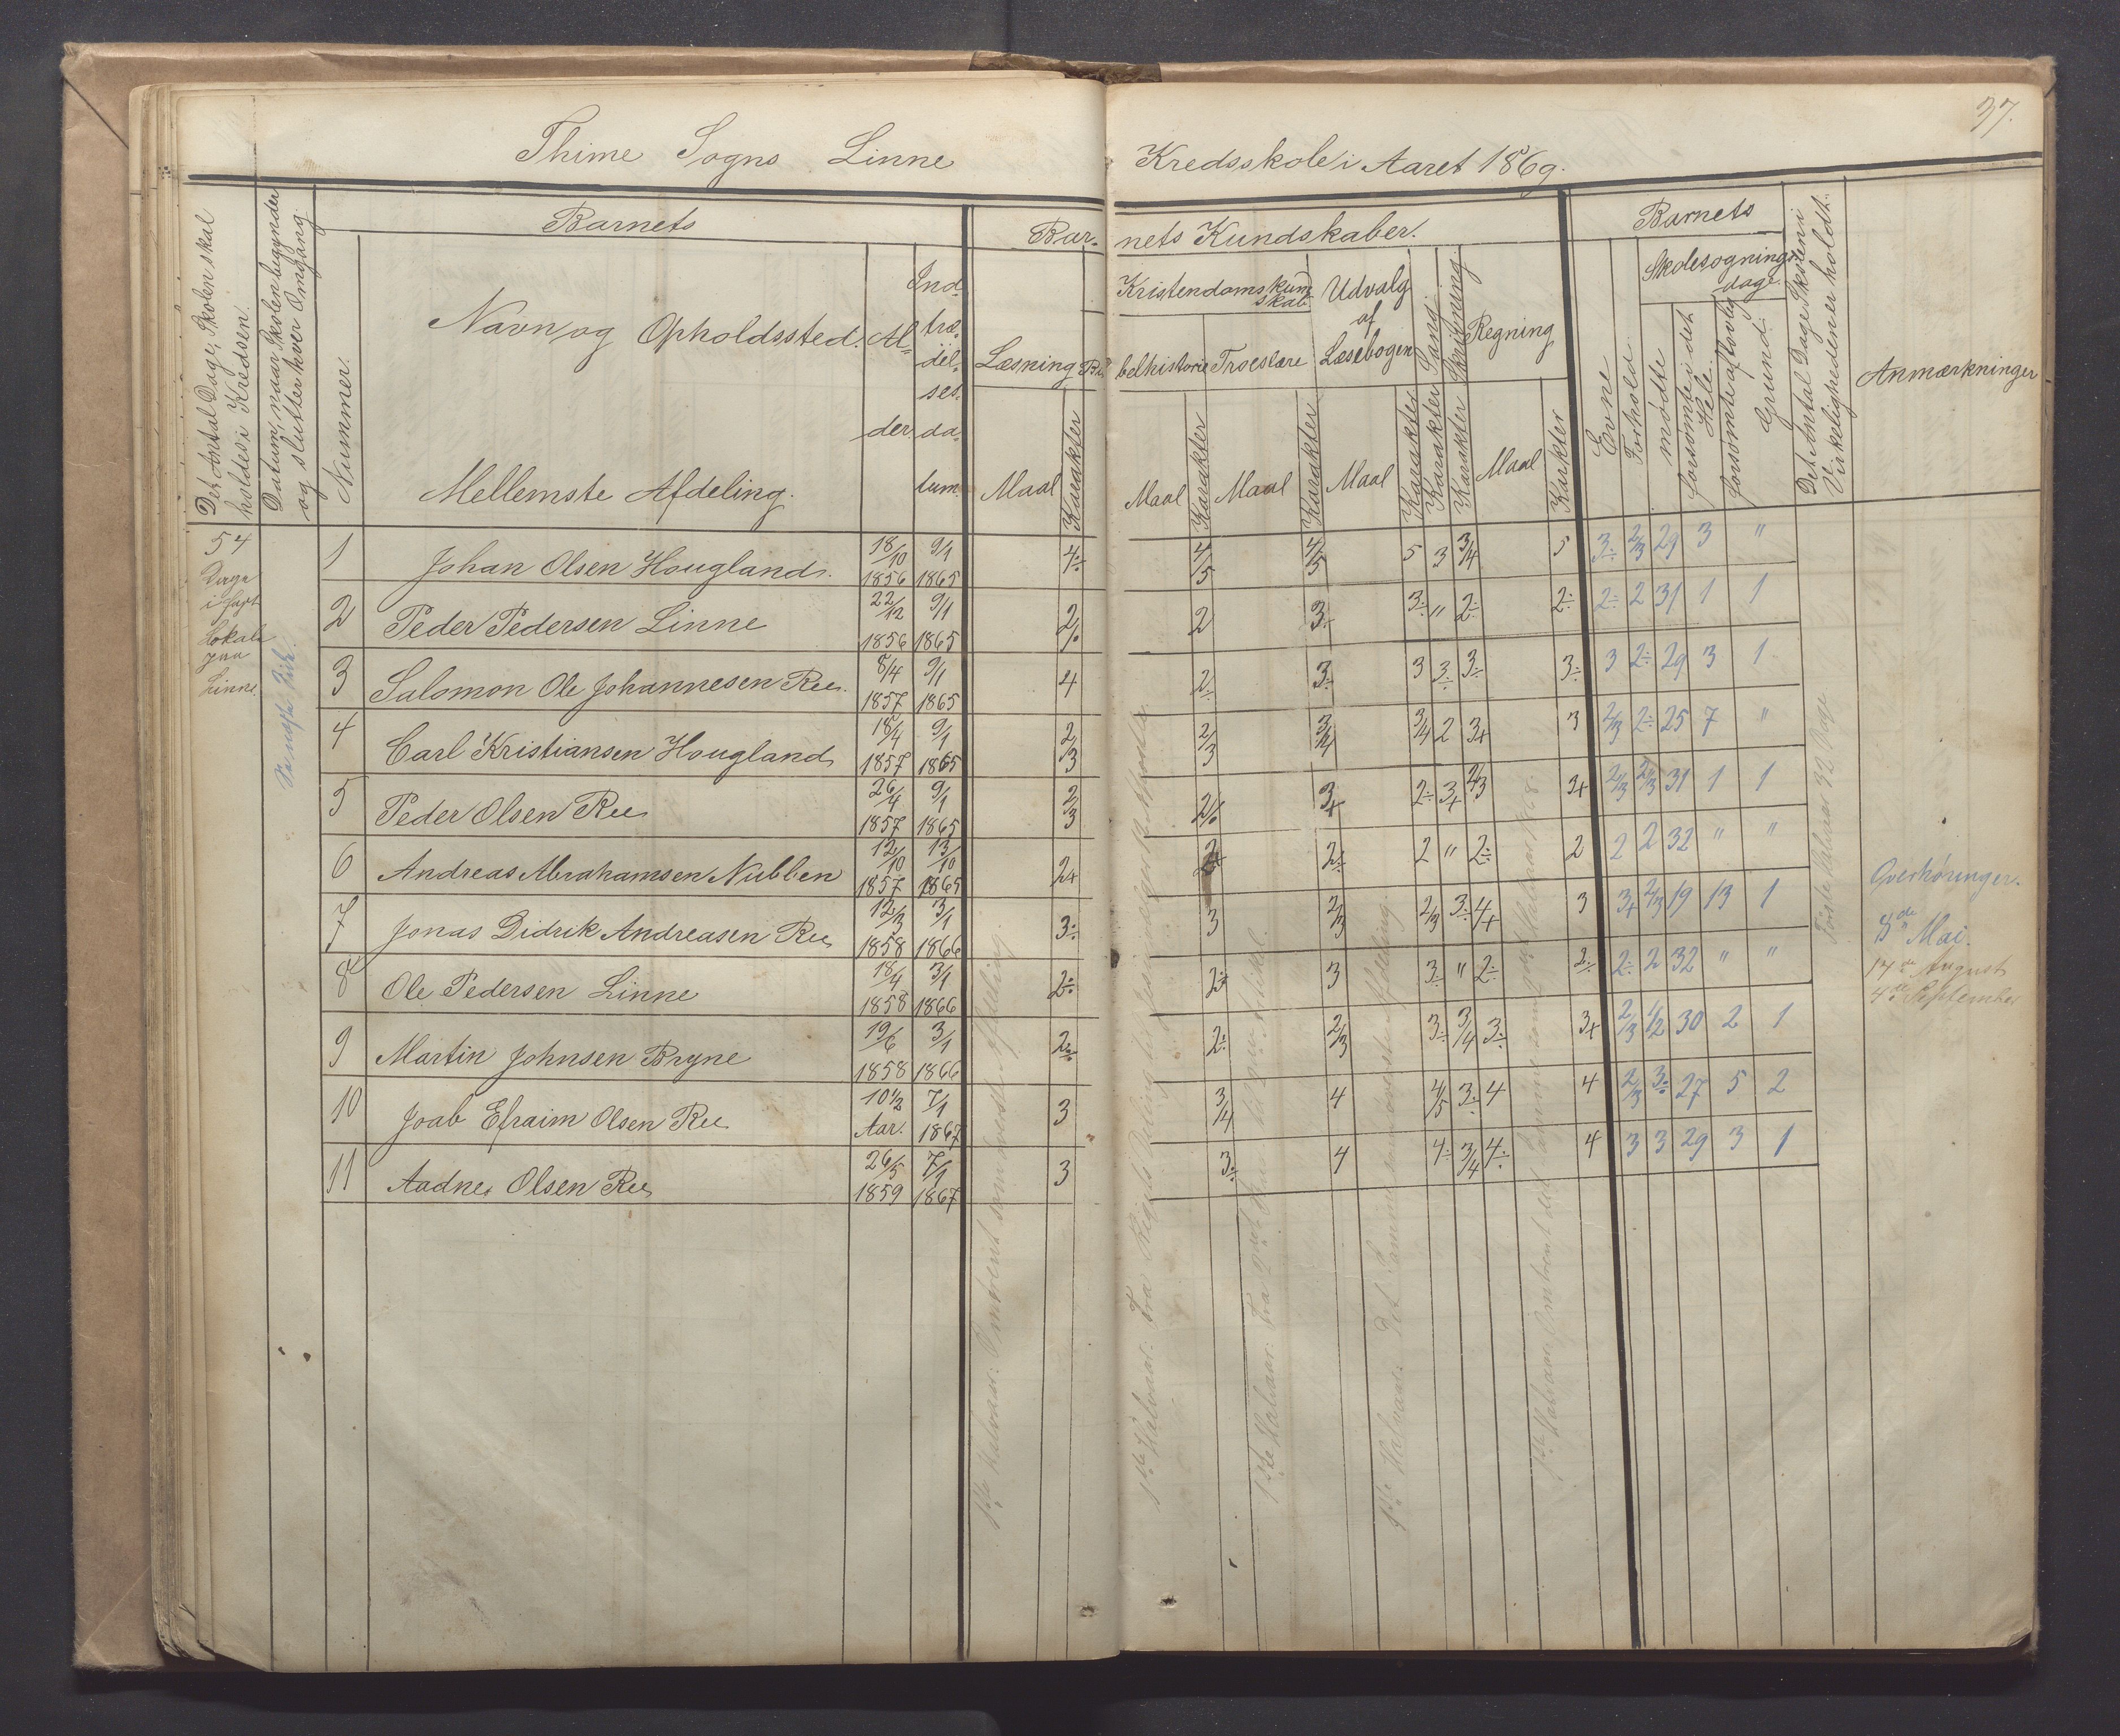 37.
Thime Sogns Linne Kredsskole i Aaret 1869.
Det Antal Dage, Skolen skal holdes i Kredsen.
Datum, naar Skolen begynder og slutter hver Omgang.
Nummer.
Barnets
Navn og Opholdssted.
Mellemste Afdeling.
Al-
der
Ind-
træ-
del-
ses-
da-
tum.
Bar- nets Kundskaber.
Læsning
Maal
Karakter
Bi- belhistorie
Kristendomskund
skab
Troeslære
Udvalg
af
Læsebogen
Sang
Skrivning
Regning
Maal Karakter Maal Karakter Maal Karakter Karakter Karakter Maal Karakter
Barnets
Evne
Forhold
Skolesøgnings-
dage
mødte
forsømte i det Hele
forsømte af lovlig Grund
Det Antal Dage Skolen i Virkeligheden er holdt.
Anmærkninger
54
Dage
i fast
Lokale
paa
Linne
1 Johan Olsen Hougland. 18/10 1856 9/1 1865 4÷ 4/5 4/5 5 3 3/4 5 3÷ 2/3 29 3 "
2 Peder Pedersen Linne 22/12 1856 9/1 1865 2% 2 3÷ 3÷ " 2÷ 2÷ 2÷ 2 31 1 1
3 Salomon Ole Johannesen Ree. 8/4 1857 9/1 1865 4 2÷ 3÷ 3 3÷ 3÷ 3÷ 3 2÷ 29 3 1
4 Carl Kristiansen Hougland 18/4 1857 9/1 1865 2/3 2/3 3/4 3/4 2 3+ 3 2/3 2÷ 25 7 "
5 Peder Olsen Ree 26/4 1857 9/1 1865 2/3 2% 3+ 2÷ 3+ 2/3 3+ 2/3 2/3 31 1 1
6 Andreas Abrahamsen Nubben 12/10 1857 13/10 1865 2+ 2+ 2÷ 2 " 2÷ 2 2 2 32 " "
7 Jonas Didrik Andreasen Ree 12/3 1858 3/1 1866 3÷ 3 2/3 2/3 3÷ 4+ 3 3+ 2/3 19 13 1
8 Ole Pedersen Linne 18/4 1858 3/1 1866 2÷ 2÷ 3 3÷ " 2÷ 2÷ 2÷ 2 32 " "
9 Martin Johnsen Bryne 19/6 1858 3/1 1866 2÷ 2÷ 2/3 3÷ 3/4 3÷ 3+ 2/3 1/2 30 2 1
10 Joab Efraim Olsen Ree 10½ Aar. 7/1 1867 3 3/4 4 4/5 3÷ 4 4 2/3 3÷ 27 5 2
11 Aadne Olsen Ree 26/5 1859 7/1 1867 3 3÷ 4 4÷ 3/4 4÷ 4 3 3 29 3 1
1ste Halvaar: Omtrent som øverste Afdeling.
1ste Halvaar: Fra Rigets Deling
1ste Halvaar: Fra 2den
1ste Halvaar: Det samme som øverste Afdeling.
1ste Halvaar: Omtrent det samme som 1868.
Første Halvaar 32 Dage
Overhøringer.
8de Mai.
17de August
4de September